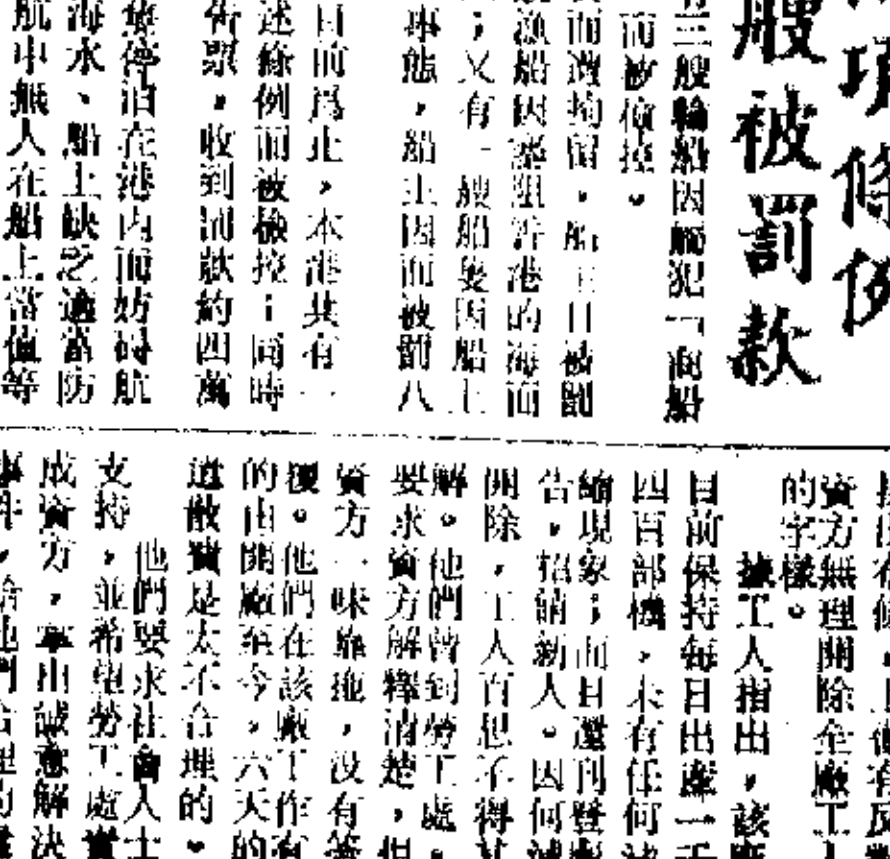 項條例
艘被罰款
有三艘輪船因觸犯「商船
而被檢控。
而遭拘留，船主且被罰
漁船因塞阻許港的海面
；又有一艘船隻因船上
事態，船主因而被罰八
目前爲止，本港共有一
述條例而被檢控；同時
告票，收到罰款約四萬
停泊在港內而妨碍航
海水、船上缺乏適當防
航中無人在船上當值等
資方無理開除全廠工人
的字樣。
據工人指出，該廠
目前保持每日出產一千
四百部機，未有任何
縮現象；而且還刊登
告，招納新人。因何
開除，工人百思不得其
解。他們曾到勞工處，
要求資方解釋清楚，但
資方一味靠拖，没有答
覆。他們在該廠工作有
的由開廠至今，六天的
遣散費是太不合理的。
他們要求社會人士
支持，並希望勞工處
成資方，拿出誠意解決
事件，給他們合理的